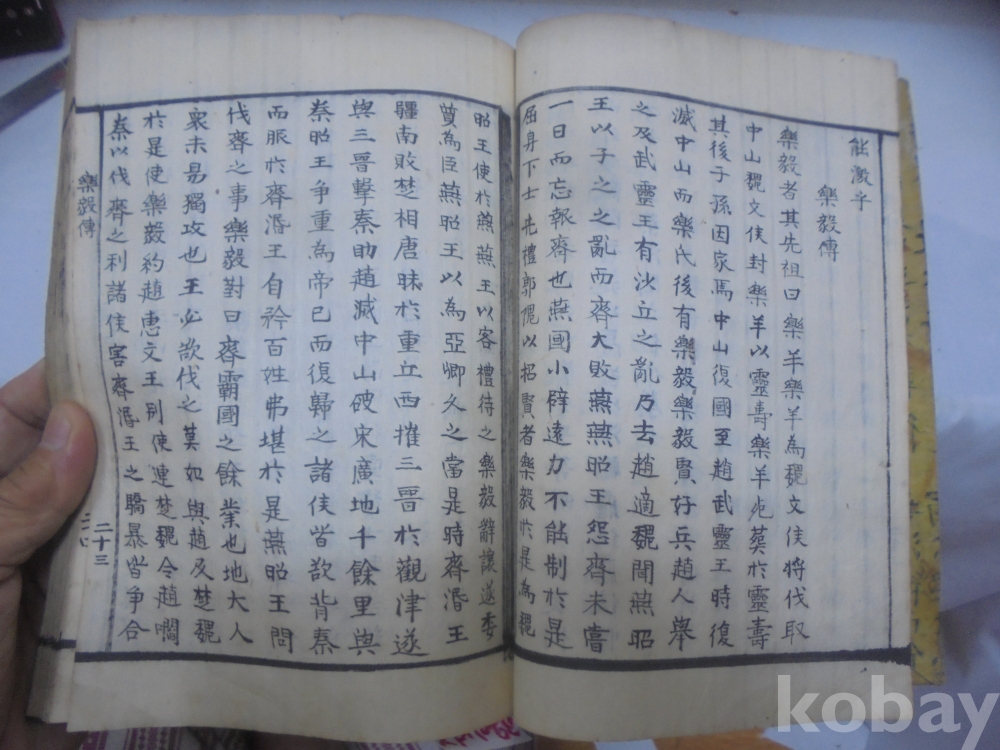 能激乎
樂毅傳
樂毅者其先祖曰樂羊樂羊為魏文侯將伐取
中山魏文侯封樂羊以靈壽樂羊死葬於靈壽
其後子孫因家焉中山復國至趙武靈王時復
滅中山而樂氏後有樂毅樂毅賢好兵趙人舉
之及武靈王有沙丘之亂乃去趙適魏聞燕昭
王以子之之亂而齊大敗燕燕昭王怨齊未嘗
一日而忘報齊也燕國小辟遠力不能制於是
屈身下士先禮郭隗以招賢者樂毅於是為魏
昭王使於燕燕王以客禮待之樂毅辭讓遂委
質為臣燕昭王以為亞卿久之當是時齊湣王
疆南敗楚相唐昧於重丘西摧三晉於觀津遂
與三晉擊秦助趙滅中山破宋廣地千餘里與
秦昭王爭重為帝已而復歸之諸侯皆欲背秦
而服於齊湣王自矜百姓弗堪於是燕昭王問
伐齊之事樂毅對曰齊霸國之餘業也地大人
衆未易獨攻也王必欲伐之莫如與趙及楚魏
於是使樂毅約趙惠文王別使連楚魏令趙嚪
秦以伐齊之利諸侯害齊湣王之驕暴皆爭合
樂毅傳
二十三
kobay